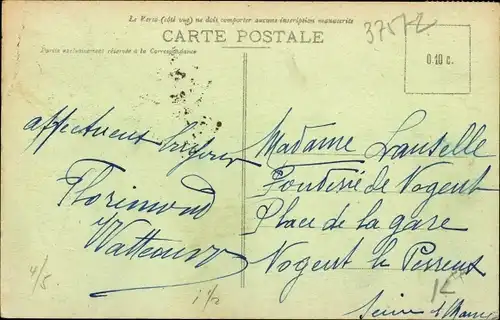 Le Verso (côté vue) ne doit comporter aucune inscription manuscrite
CARTE POSTALE
Partie exclusivement réservée à la Correspondance
37572
0.10 c.
affectueux bonjour
Florimond
Madame Lauselle
de Nogent
Place de la gare
Nogent le Perreux
Seine &
4/5
1/2